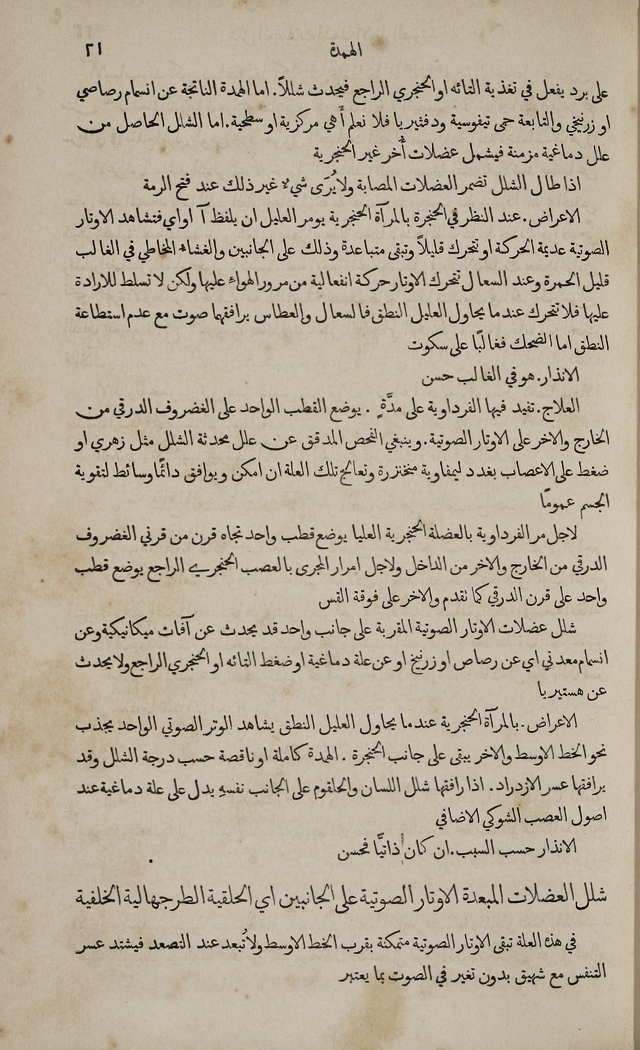 الهمدة ٢١
على برد يفعل في تغذية التائه او الحنجري الراجع فيحدث شللاً. اما الهمدة الناتجة عن انسمام رصاصي
او زرنيخي والتابعة حمى تيفوسية ودفثيريا فلا نعلم أهي مركزية او سطحية. اما الشلل الحاصل من
علل دماغية مزمنة فيشمل عضلات أخر غير الحنجرية
اذا طال الشلل تضمر العضلات المصابة ولا يُرَى شيء غير ذلك عند فتح الرمة
الاعراض. عند النظر في الحنجرة بالمرآة الحنجرية يومر العليل ان يلفظ آ او اي فتشاهد الاوتار
الصوتية عديمة الحركة او تتحرك قليلاً وتبقى متباعدة وذلك على الجانبين والغشاء المخاطي في الغالب
قليل الحمرة وعند السعال تتحرك الاوتار حركة انفعالية من مرور الهواء عليها ولكن لا تسلط للارادة
عليها فلا تتحرك عندما يحاول العليل النطق فالسعال والعطاس يرافقهما صوت مع عدم استطاعة
النطق اما الضحك فغالبًا على سكوت
الانذار. هو في الغالب حسن
العلاج. تفيد فيها الفرداوية على مدَّةٍ . يوضع القطب الواحد على الغضروف الدرقي من
الخارج والاخر على الاوتار الصوتية. وينبغي الفحص المدقق عن علل محدثة الشلل مثل زهري او
ضغط على الاعصاب بغدد ليمفاوية متخنزرة وتعالج تلك العلة ان امكن ويوافق دائمًا وسائط لتقوية
الجسم عمومًا
لاجل مر الفرداوية بالعضلة الحنجرية العليا يوضع قطب واحد تجاه قرن من قرني الغضروف
الدرقي من الخارج والاخر من الداخل ولاجل امرار المجرى بالعصب الحنجري الراجع يوضع قطب
واحد على قرن الدرقي كما تقدم والاخر على فوقة القس
شلل عضلات الاوتار الصوتية المقربة على جانب واحد قد يحدث عن آفات ميكانيكية وعن
انسمام معدني اي عن رصاص او زرنيخ او عن علة دماغية او ضغط التائه او الحنجري الراجع ولا يحدث
عن هستيريا
الاعراض. بالمرآة الحنجرية عندما يحاول العليل النطق يشاهد الوتر الصوتي الواحد يجذب
نحو الخط الاوسط والاخر يبقى على جانب الحنجرة . الهمدة كاملة او ناقصة حسب درجة الشلل وقد
يرافقها عسر الازدراد. اذا رافقها شلل اللسان والحلقوم على الجانب نفسهِ يدل على علة دماغية عند
اصول العصب الشوكي الاضافي
الانذار حسب السبب. ان كان ذاتيًّا فحسن
شلل العضلات المبعدة الاوتار الصوتية على الجانبين اي الحلقية الطرجهالية الخلفية
في هذه العلة تبقى الاوتار الصوتية متمكنة بقرب الخط الاوسط ولا تُبعد عند التصعد فيشتد عسر
التنفس مع شهيق بدون تغير في الصوت بما يعتبر